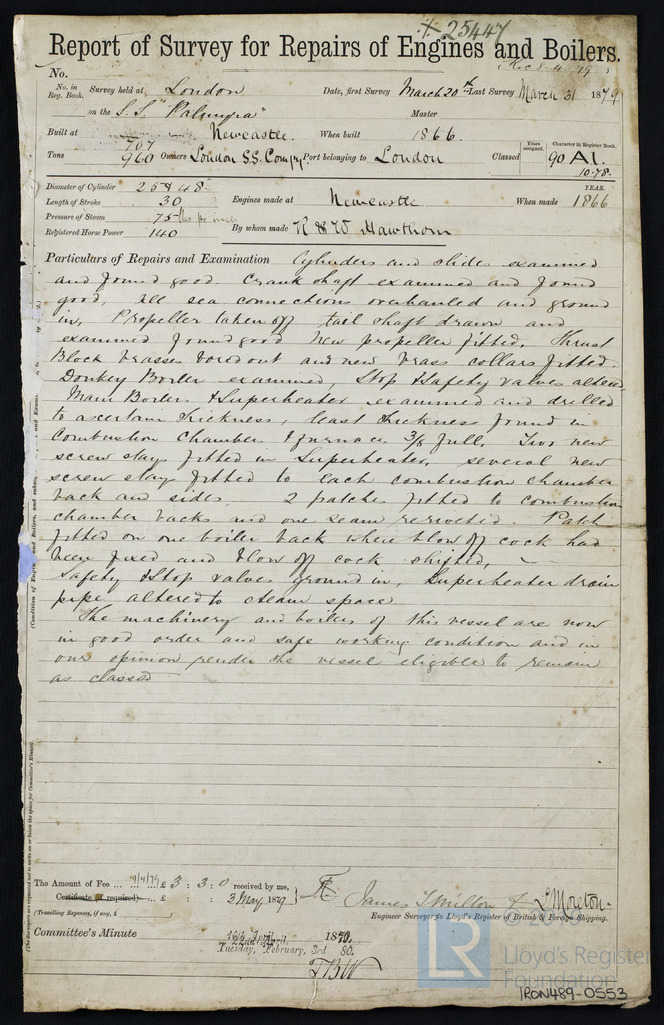 25447
Report of Survey for Repairs of Engines and Boilers.
No. Rec 8-4-79
No. in Reg. Book. Survey held at London Date, first Survey March 20th Last Survey March 31 1879
on the S.S. "Palmyra" Master
Built at Newcastle. When built 1866.
707
Tons 960 Owners London S.S. Compy Port belonging to London Classed Years assigned. 90 Character in Register Book. A1.
10-78.
Diameter of Cylinder 25 & 48 YEAR.
Length of Stroke 30 Engines made at Newcastle When made 1866
Pressure of Steam 75 lbs pr inch
Registered Horse Power 140 By whom made R & W Hawthorn
Particulars of Repairs and Examination Cylinders and slides examined
and found good. Crank shaft examined and found
good, all sea connections overhauled and ground
in, Propeller taken off tail shaft drawn and
examined found good new propeller fitted. Thrust
Block brasses bored out and new brass collars fitted.
Donkey Boiler examined, Stop & Safety valves altered
Main Boilers & Superheater examined and drilled
to ascertain thickness, least thickness found in
Combustion Chamber & furnaces 3/8 full. Two new
screw stays fitted in Superheater, several new
screw stays fitted to each combustion chamber
back and sides, 2 patches fitted to combustion
chamber backs and one seam reriveted. Patch
fitted on one boiler back where blow off cock had
been fixed and blow off cock shifted,
Safety & Stop valves ground in, Superheater drain
pipe altered to steam space
The machinery and boilers of this vessel are now
in good order and safe working condition and in
our opinion render the vessel eligible to remain
as classed
The Amount of Fee ... 9/4/79 £ 3 : 3 : 0 received by me,
Certificate (if required) ... £ : : 3 May 1879
(Travelling Expenses, if any, £
James T Milton & L Moreton
Engineer Surveyors to Lloyd's Register of British & Foreign Shipping.
Committee's Minute 1879.
Tuesday, February, 3rd 80.
LR
Lloyd's Register
Foundation
IRON489-0553